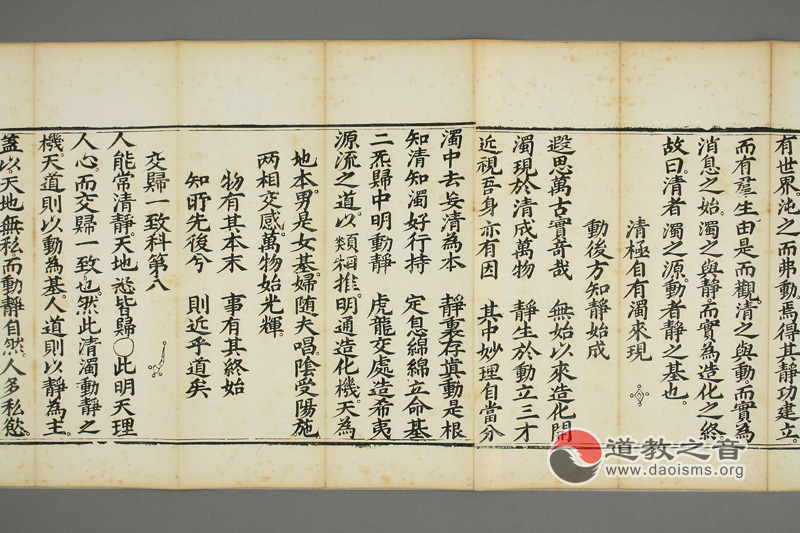 有世界沌之而弗動焉得其靜功建立。
而有羣生由是而觀清之與動。而實為
消息之始。濁之與靜而實為造化之終
故曰。清者濁之源。動者靜之基也。
清極自有濁來現
動後方知靜始成
遐思萬古實奇哉 無始以來造化開
濁現於清成萬物 靜生於動立三才
近視吾身亦有因 其中妙理自當分
濁中去妄清為本 靜裏存真動是根
知清知濁好行持 定息綿綿立命基
二炁歸中明動靜 虎龍交處造希夷
源流之道。以類相推。明通造化機。天為
地本。男是女基。婦随夫唱。陰受陽施
两相交感。萬物始光輝。
物有其本末 事有其終始
知所先後兮 則近乎道矣
交歸一致科第八
人能常清靜。天地悉皆歸〇此明天理
人心。而交歸一致也。然此清濁動靜之
機。天道則以動為基。人道則以靜為主。
盖以天地無私而動靜自然。人多私慾。
道教之音
www.daoisms.org